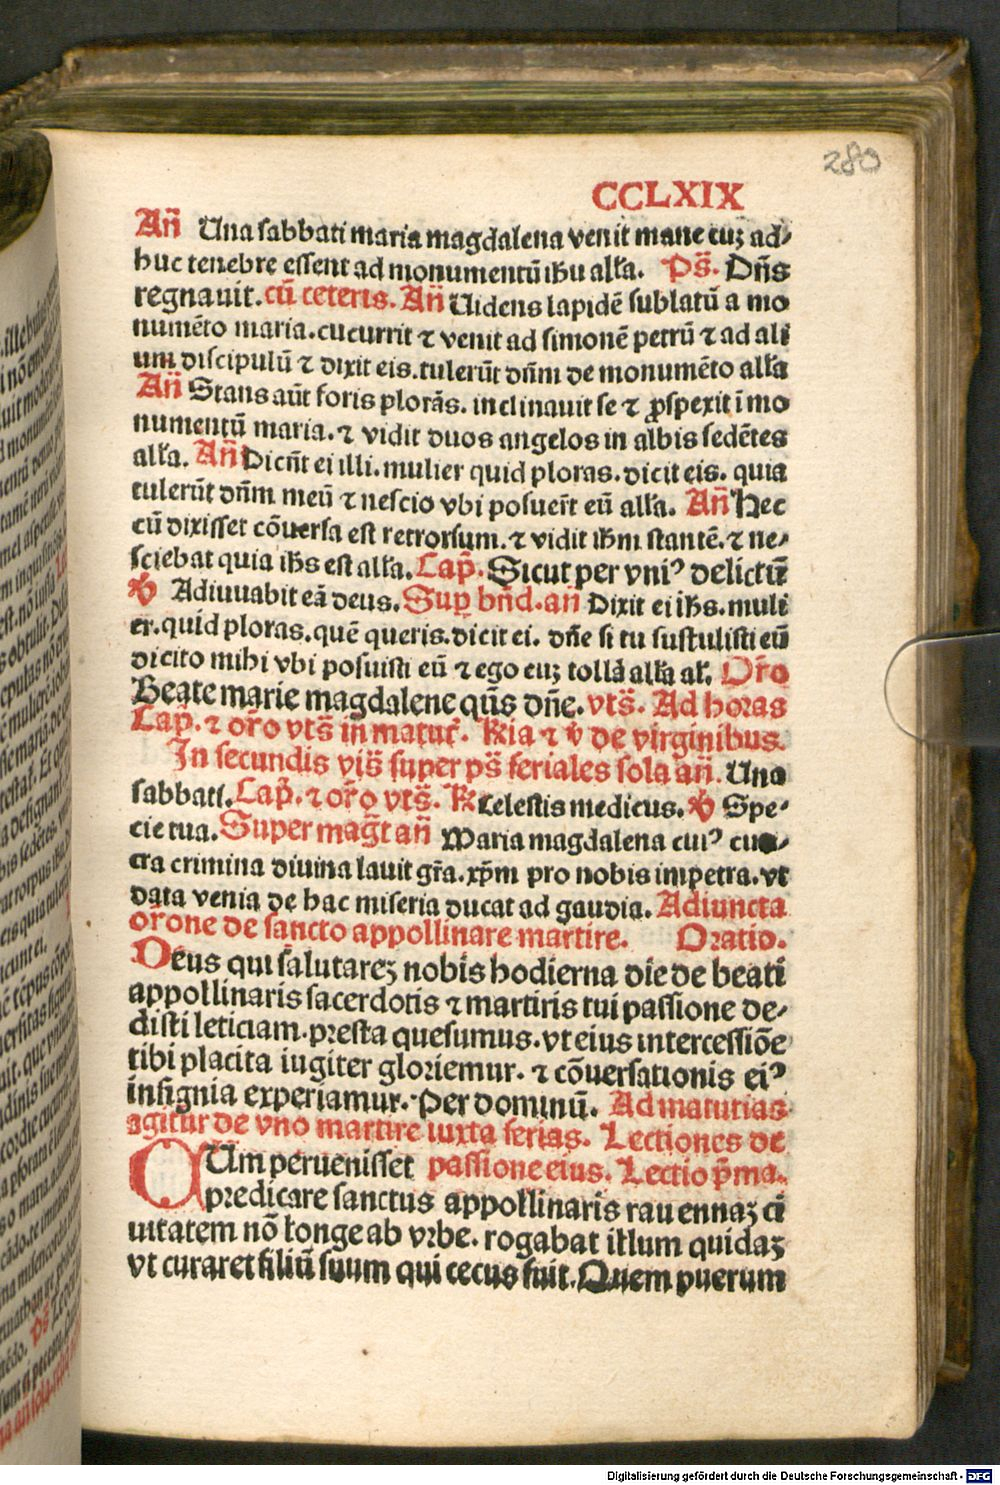 280
CCLXIX
Añ Una sabbati maria magdalena venit mane cuȝ ad⸗
huc tenebre essent ad monumentū ihu alla. Ps̄. Dn̄s
regnauit. cū ceteris. Añ Uidens lapidē sublatū a mo
numēto maria. cucurrit ⁊ venit ad simonē petrū ⁊ ad ali
um discipulū ⁊ dixit eis. tulerūt dn̄m de monumēto alła
Añ Stans aūt foris plorās. inclinauit se ⁊ ꝓspexit ī mo
numentū maria. ⁊ vidit duos angelos in albis sedētes
alła. Añ Dicūt ei illi. mulier quid ploras. dicit eis. quia
tulerūt dn̄m meū ⁊ nescio vbi posuer̄t eū alła. Añ Hec
cū dixisset cōuersa est retrorsum. ⁊ vidit ihm stantē. ⁊ ne⸗
sciebat quia ihs est alła. Cap̄. Sicut per vniꝰ delictū
℣ Adiuuabit eā deus. Suꝑ bn̄d. añ Dixit ei ihs. muli
er. quid ploras. quē queris. dicit ei. dn̄e si tu sustulisti eū
dicito mihi vbi posuisti eū ⁊ ego euȝ tollā alła al̄. Or̄o
Beate marie magdalene qūs dn̄e. vts̄. Ad horas
Cap̄. ⁊ or̄o vts̄ in matut̄. ℟ia ⁊ ℣ de virginibus.
In secundis vis̄ super ps̄ feriales sola añ. Una
sabbati. Cap̄. ⁊ or̄o vts̄. ℟ Celestis medicus. ℣ Spe⸗
cie tua. Super mag̅t añ Maria magdalena cuiꝰ cun⸗
cta crimina diuina lauit gr̄a. xp̄m pro nobis impetra. vt
data venia de hac miseria ducat ad gaudia. Adiuncta
or̄one de sancto appollinare martire. Oratio.
Deus qui salutareȝ nobis hodierna die de beati
appollinaris sacerdotis ⁊ martiris tui passione de⸗
disti leticiam. presta quesumus. vt eius intercessiōe
tibi placita iugiter gloriemur. ⁊ cōuersationis eiꝰ
insignia experiamur. Per dominū. Ad matutias
agitur de vno martire iuxta ferias. Lectiones de
CUm peruenisset passione eius. Lectio p̄ma.
predicare sanctus appollinaris rauennaȝ ci
uitatem nō longe ab vrbe. rogabat illum quidaȝ
vt curaret filiū suum qui cecus fuit. Quem puerum
Digitalisierung gefördert durch die Deutsche Forschungsgemeinschaft - DFG